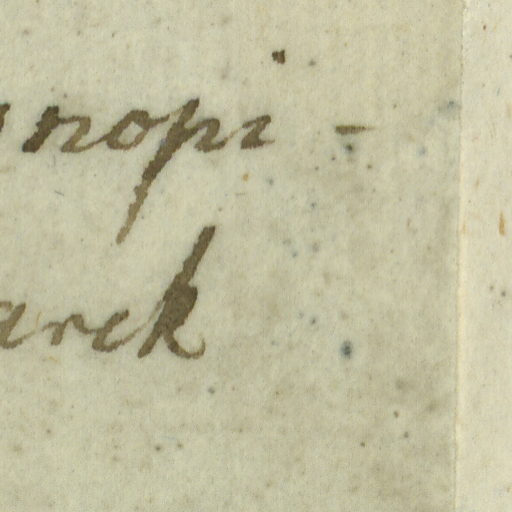 nopi -
arck